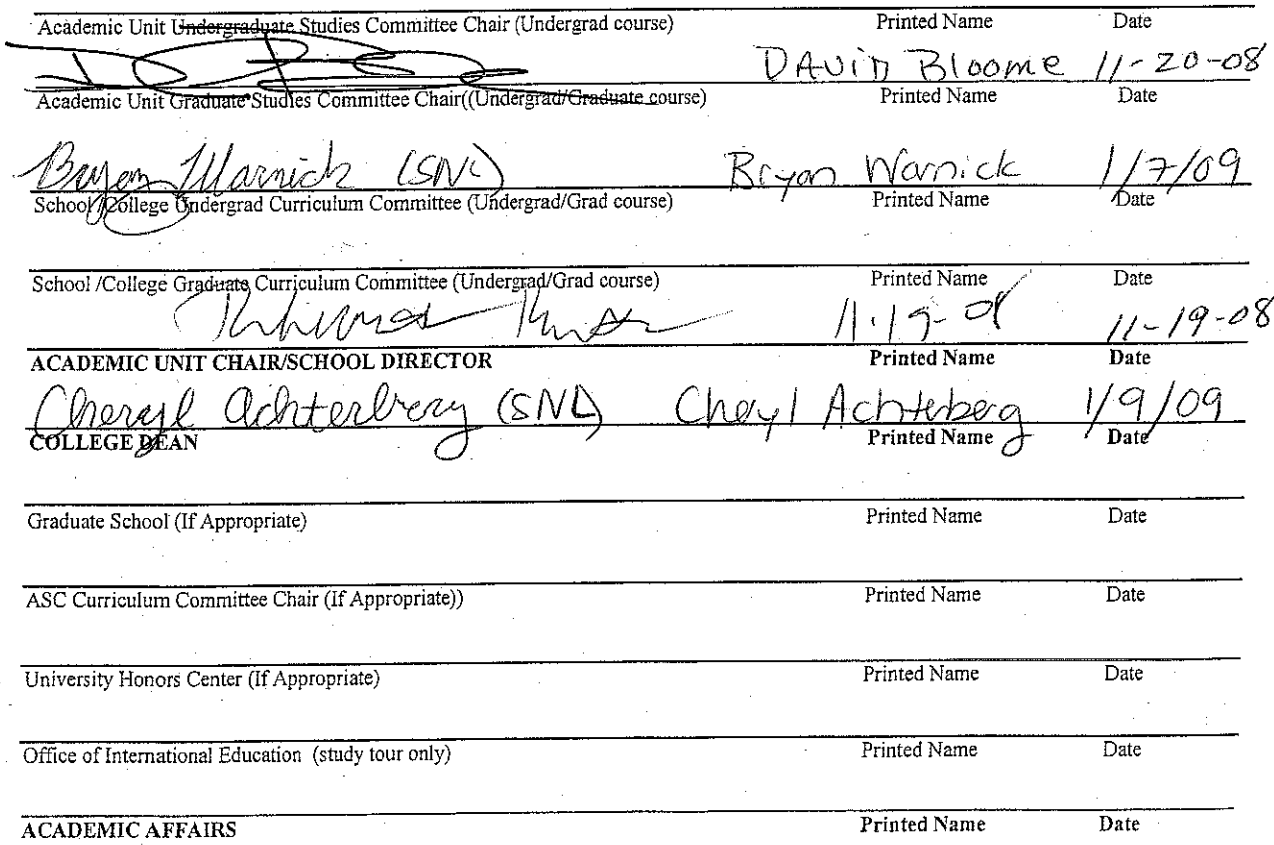 Academic Unit Undergraduate Studies Committee Chair (Undergrad course) Printed Name Date
DAVID Bloome 11-20-08
Academic Unit Graduate Studies Committee Chair((Undergrad/Graduate course) Printed Name Date
Bryan Warnick (SNL) Bryan Warnick 1/7/09
School /College Undergrad Curriculum Committee (Undergrad/Grad course) Printed Name Date
School /College Graduate Curriculum Committee (Undergrad/Grad course) Printed Name Date
11-19-08
ACADEMIC UNIT CHAIR/SCHOOL DIRECTOR Printed Name Date
Cheryl Achterberg (SNL) Cheryl Achterberg 1/9/09
COLLEGE DEAN Printed Name Date
Graduate School (If Appropriate) Printed Name Date
ASC Curriculum Committee Chair (If Appropriate)) Printed Name Date
University Honors Center (If Appropriate) Printed Name Date
Office of International Education (study tour only) Printed Name Date
ACADEMIC AFFAIRS Printed Name Date